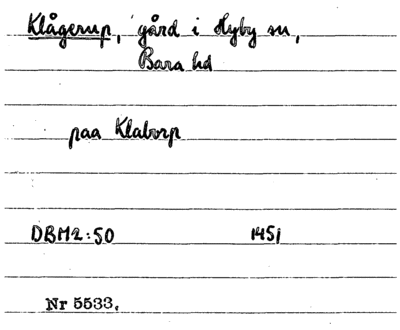 Klågerup, gård i Hyby sn,
Bara hd
paa Klaborp
DBM2:50 1451
Nr 5533.